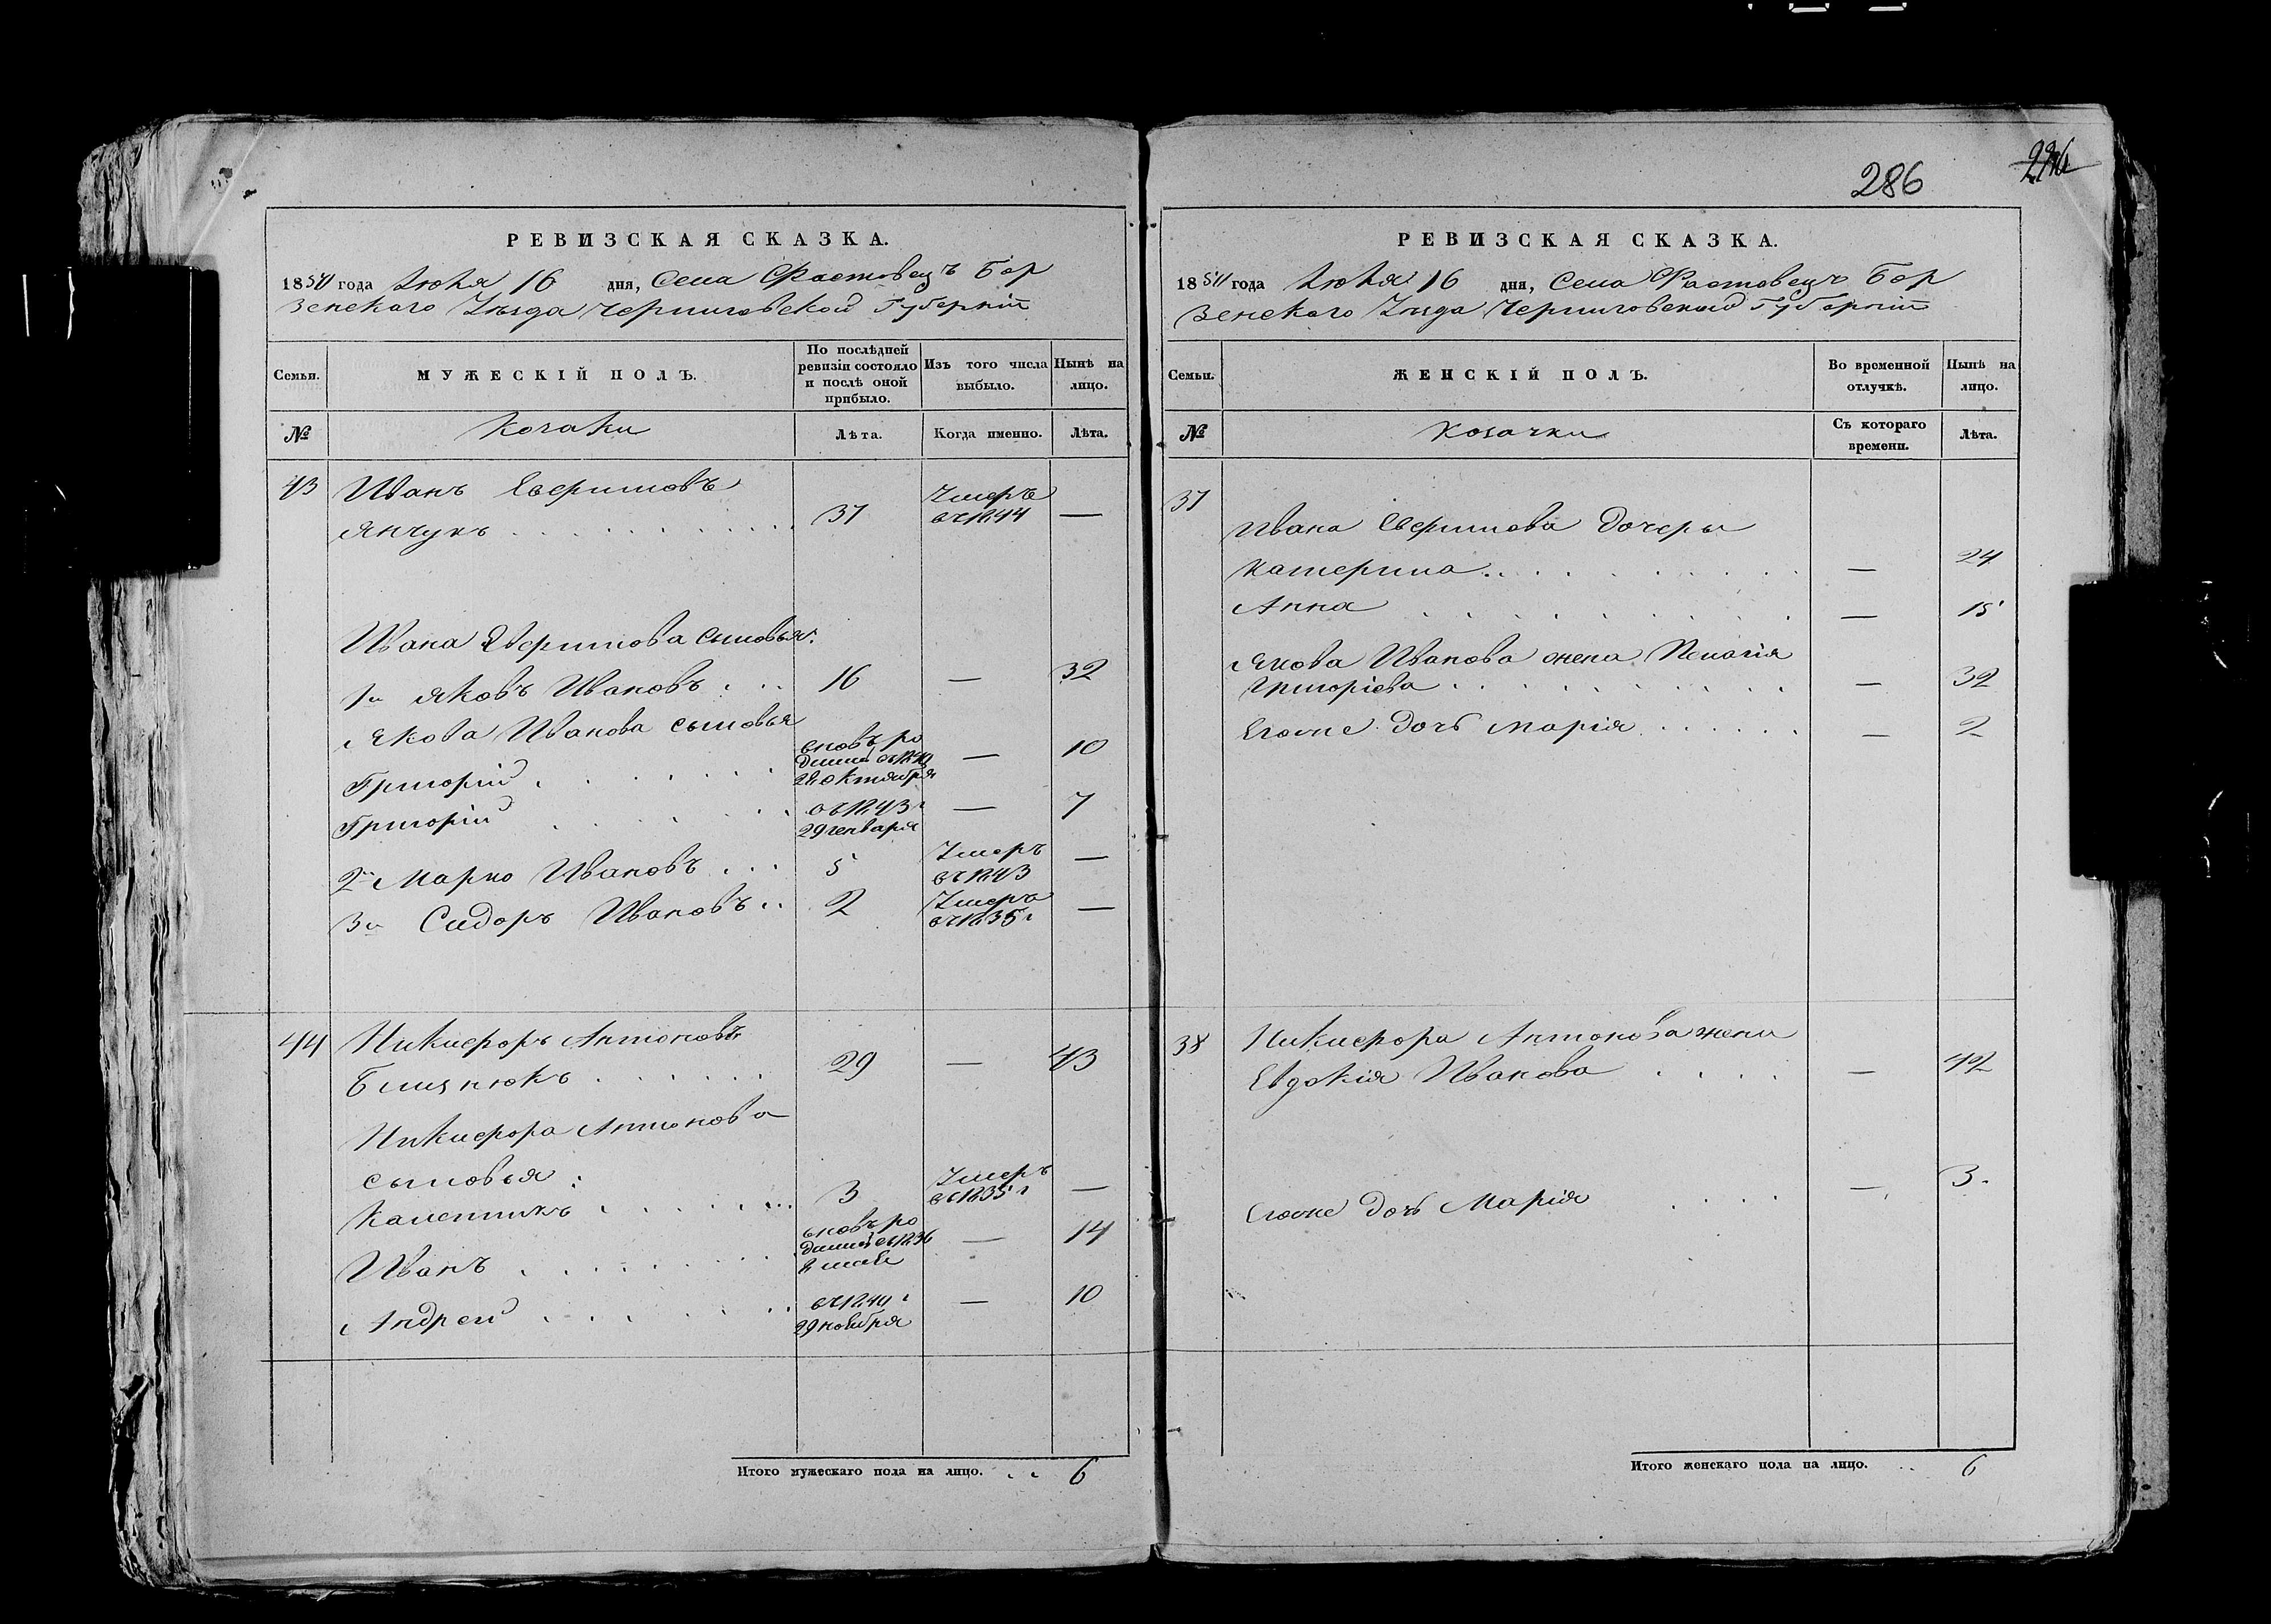 286
РЕВИЗСКАЯ СКАЗКА.
1850 года Июля 16 дня, Села Фастовецъ Бор
зенскаго Уѣзда Черниговской Губерніи
Семьи. МУЖЕСКІЙ ПОЛЪ. По послѣдней ревизіи состояло и послѣ оной прибыло. Изъ того числа выбыло. Нынѣ на лицо.
№ Козаки Лѣта. Когда именно. Лѣта.
43 Иванъ Сверимовъ
Янчукъ 37 Умеръ въ 1844 —
Ивана Сверимова сыновья:
1й Яковъ Ивановъ 16 — 32
Якова Иванова сыновья
Григорій вновь ро
дился въ 1840 — 10
октября
Григорій въ 1843 г — 7
29 генваря
2й Марко Ивановъ 5 Умеръ въ 1843 —
3й Сидоръ Ивановъ 2 Умеръ въ 1835 г —
44 Никифоръ Антоновъ
Близнюкъ 29 — 43
Никифора Антонова
сыновья:
Калепникъ 3 Умеръ въ 1835 г —
Иванъ вновь ро
дился въ 1836 — 14
Андрей въ 1840 г — 10
29 ноября
Итого мужескаго пола на лицо. 6
РЕВИЗСКАЯ СКАЗКА.
1850 года Июля 16 дня, Села Фастовецъ Бор
зенскаго Уѣзда Черниговской Губерніи
Семьи. ЖЕНСКІЙ ПОЛЪ. Во временной отлучкѣ. Нынѣ на лицо.
№ Козачки Съ котораго времени. Лѣта.
37
Ивана Сверимова дочеры
Катерина — 24
Анна — 15
Якова Иванова жена Пелагія
Григоріева — 32
Егоже дочь Марія — 2
38 Никифора Антонова жена
Евдокія Иванова — 42
Егоже дочь Марія — 3
Итого женскаго пола на лицо. 6